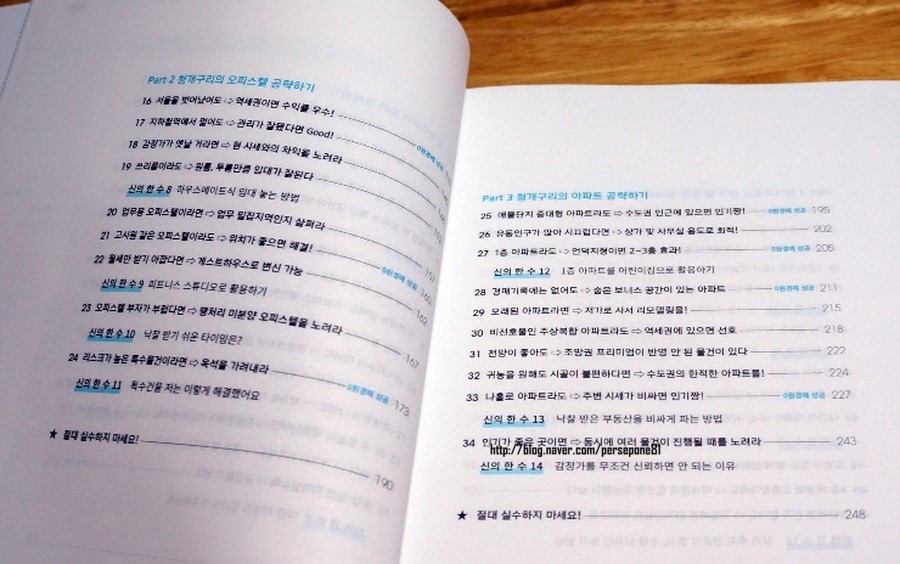 Part 2 청개구리의 오피스텔 공략하기
16 서울을 벗어났어도 ⇨ 역세권이면 수익률 우수!
17 지하철역에서 멀어도 ⇨ 관리가 잘됐다면 Good! 0원경매 성공
18 감정가가 옛날 거라면 ⇨ 현 시세와의 차익을 노려라
19 쓰리룸이라도 ⇨ 원룸, 투룸만큼 임대가 잘된다
신의 한 수 8 하우스메이트식 임대 놓는 방법
20 업무용 오피스텔이라면 ⇨ 업무 밀집지역인지 살펴라
21 고시원 같은 오피스텔이라도 ⇨ 위치가 좋으면 해결! 157
22 월세만 받기 아깝다면 ⇨ 게스트하우스로 변신 가능 0원경매 성공 160
신의 한 수 9 피트니스 스튜디오로 활용하기 162
23 오피스텔 부자가 부럽다면 ⇨ 땡처리 미분양 오피스텔을 노려라 167
신의 한 수 10 낙찰 받기 쉬운 타이밍은?
24 리스크가 높은 특수물건이라면 ⇨ 옥석을 가려내라 0원경매 성공 173
신의 한 수 11 특수물건 저는 이렇게 해결했어요
★ 절대 실수하지 마세요! 190
Part 3 청개구리의 아파트 공략하기
25 애물단지 중대형 아파트라도 ⇨ 수도권 인근에 있으면 인기짱! 0원경매 성공 195
26 유동인구가 많아 시끄럽다면 ⇨ 상가 및 사무실 용도로 최적! 202
27 1층 아파트라도 ⇨ 언덕지형이면 2~3층 효과! 0원경매 성공 205
신의 한 수 12 1층 아파트를 어린이집으로 활용하기
28 경매기록에는 없어도 ⇨ 숨은 보너스 공간이 있는 아파트 0원경매 성공 211
29 오래된 아파트라면 ⇨ 저가로 사서 리모델링을! 215
30 비선호물인 주상복합 아파트라도 ⇨ 역세권에 있으면 선호 218
31 전망이 좋아도 ⇨ 조망권 프리미엄이 반영 안 된 물건이 있다 222
32 귀농을 원해도 시골이 불편하다면 ⇨ 수도권의 한적한 아파트를! 224
33 나홀로 아파트라도 ⇨ 주변 시세가 비싸면 인기짱! 0원경매 성공 227
신의 한 수 13 낙찰 받은 부동산을 비싸게 파는 방법
34 인기가 좋은 곳이면 ⇨ 동시에 여러 물건이 진행될 때를 노려라 243
http://blog.naver.com/persepone81
신의 한 수 14 감정가를 무조건 신뢰하면 안 되는 이유
★ 절대 실수하지 마세요! 248